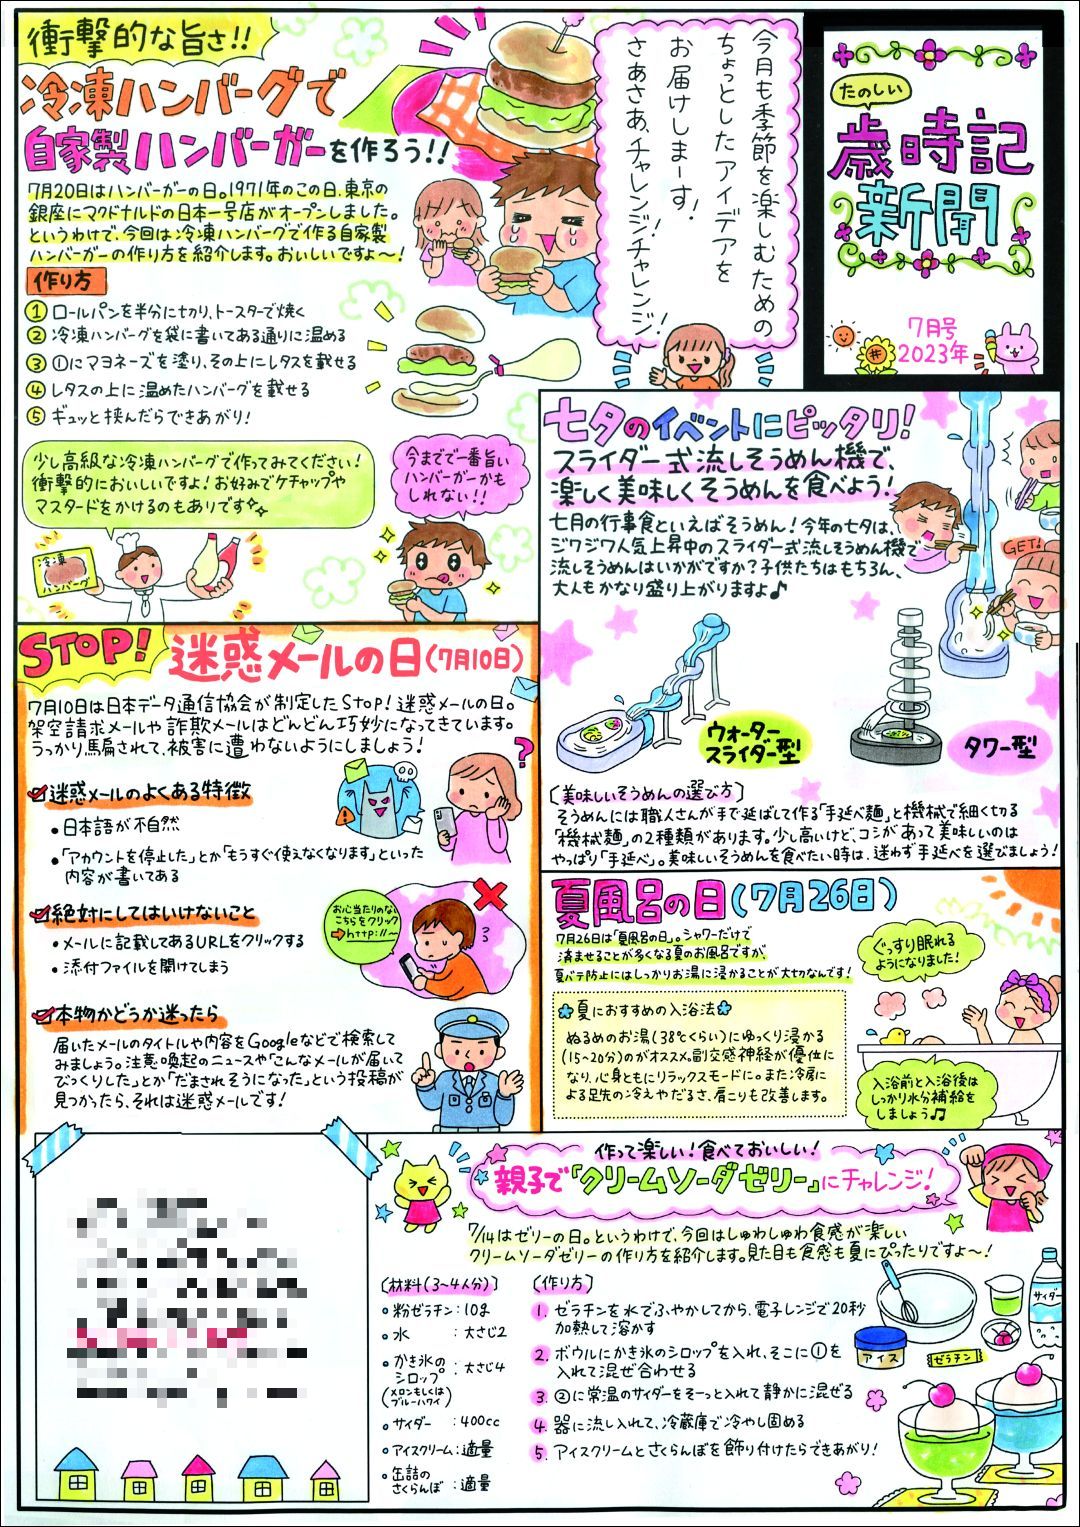 たのしい
歳時記
新聞
7月号
2023年
今月も季節を楽しむための
ちょっとしたアイデアを
お届けしまーす!
さあさあ、チャレンジ!チャレンジ!
衝撃的な旨さ!!
冷凍ハンバーグで
自家製ハンバーガーを作ろう!!
7月20日はハンバーガーの日。1971年のこの日、東京の
銀座にマクドナルドの日本一号店がオープンしました。
というわけで、今回は冷凍ハンバーグで作る自家製
ハンバーガーの作り方を紹介します。おいしいですよ〜!
作り方
① ロールパンを半分に切り、トースターで焼く
② 冷凍ハンバーグを袋に書いてある通りに温める
③ ①にマヨネーズを塗り、その上にレタスを載せる
④ レタスの上に温めたハンバーグを載せる
⑤ ギュッと挟んだらできあがり!
少し高級な冷凍ハンバーグで作ってみてください!
衝撃的においしいですよ!お好みでケチャップや
マスタードをかけるのもありです
今までで一番旨い
ハンバーガーかも
しれない!!
冷凍
ハンバーグ
七夕のイベントにピッタリ!
スライダー式流しそうめん機で、
楽しく美味しくそうめんを食べよう!
七月の行事食といえばそうめん!今年の七夕は、
ジワジワ人気上昇中のスライダー式流しそうめん機で
流しそうめんはいかがですか?子供たちはもちろん、
大人もかなり盛り上がりますよ♪
GET!
ウォーター
スライダー型
タワー型
〔美味しいそうめんの選び方〕
そうめんには職人さんが手で延ばして作る「手延べ麺」と機械で細く切る
「機械麺」の2種類があります。少し高いけど、コシがあって美味しいのは
やっぱり「手延べ」。美味しいそうめんを食べたい時は、迷わず手延べを選びましょう!
STOP!
迷惑メールの日(7月10日)
7月10日は日本データ通信協会が制定したStop!迷惑メールの日。
架空請求メールや詐欺メールはどんどん巧妙になってきています。
うっかり騙されて、被害に遭わないようにしましょう!
迷惑メールのよくある特徴
・日本語が不自然
・「アカウントを停止した」とか「もうすぐ使えなくなります」といった
内容が書いてある
?
絶対にしてはいけないこと
・メールに記載してあるURLをクリックする
・添付ファイルを開けてしまう
お心当たりのない
こちらをクリック
⇨http://〜
本物かどうか迷ったら
届いたメールのタイトルや内容をGoogleなどで検索して
みましょう。注意喚起のニュースや「こんなメールが届いて
びっくりした」とか「だまされそうになった」という投稿が
見つかったら、それは迷惑メールです!
夏風呂の日(7月26日)
7月26日は「夏風呂の日」。シャワーだけで
済ませることが多くなる夏のお風呂ですが、
夏バテ防止にはしっかりお湯に浸かることが大切なんです!
夏におすすめの入浴法
ぬるめのお湯(38℃くらい)にゆっくり浸かる
(15~20分)のがオススメ。副交感神経が優位に
なり、心身ともにリラックスモードに。また冷房に
よる足先の冷えやだるさ、肩こりも改善します。
ぐっすり眠れる
ようになりました!
入浴前と入浴後は
しっかり水分補給を
しましょう♫
作って楽しい!食べておいしい!
親子で「クリームソーダゼリー」にチャレンジ!
7/14はゼリーの日。というわけで、今回はしゅわしゅわ食感が楽しい
クリームソーダゼリーの作り方を紹介します。見た目も食感も夏にぴったりですよ〜!
〔材料(3~4人分)〕
・粉ゼラチン:10g
・水 :大さじ2
・かき氷の
シロップ :大さじ4
(メロンもしくは
ブルーハワイ)
・サイダー :400cc
・アイスクリーム:適量
・缶詰の
さくらんぼ :適量
〔作り方〕
1. ゼラチンを水でふやかしてから、電子レンジで20秒
加熱して溶かす
2. ボウルにかき氷のシロップを入れ、そこに①を
入れて混ぜ合わせる
3. ②に常温のサイダーをそーっと入れて静かに混ぜる
4. 器に流し入れて、冷蔵庫で冷やし固める
5. アイスクリームとさくらんぼを飾り付けたらできあがり!
サイダー
アイス
ゼラチン